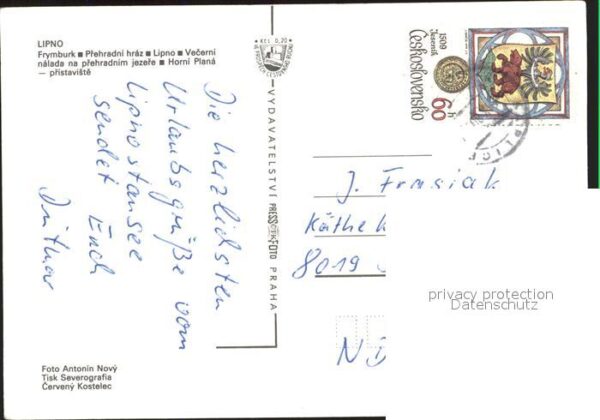 LIPNO
Frymburk ■ Přehradní hráz ■ Lipno ■ Večerní
nálada na přehradním jezeře ■ Horní Planá
— přístaviště
Kčs 0,20
VE PROSPĚCH CESTOVNÍHO RUCHU
1509
Jeseník
Československo
60 h
Die herzlichsten
Urlaubsgrüße vom
Lipnostausee
sendet Euch
VYDAVATELSTVÍ PRESSFOTO PRAHA
J.
Käthe
8019
privacy protection
Datenschutz
Foto Antonín Nový
Tisk Severografia
Červený Kostelec